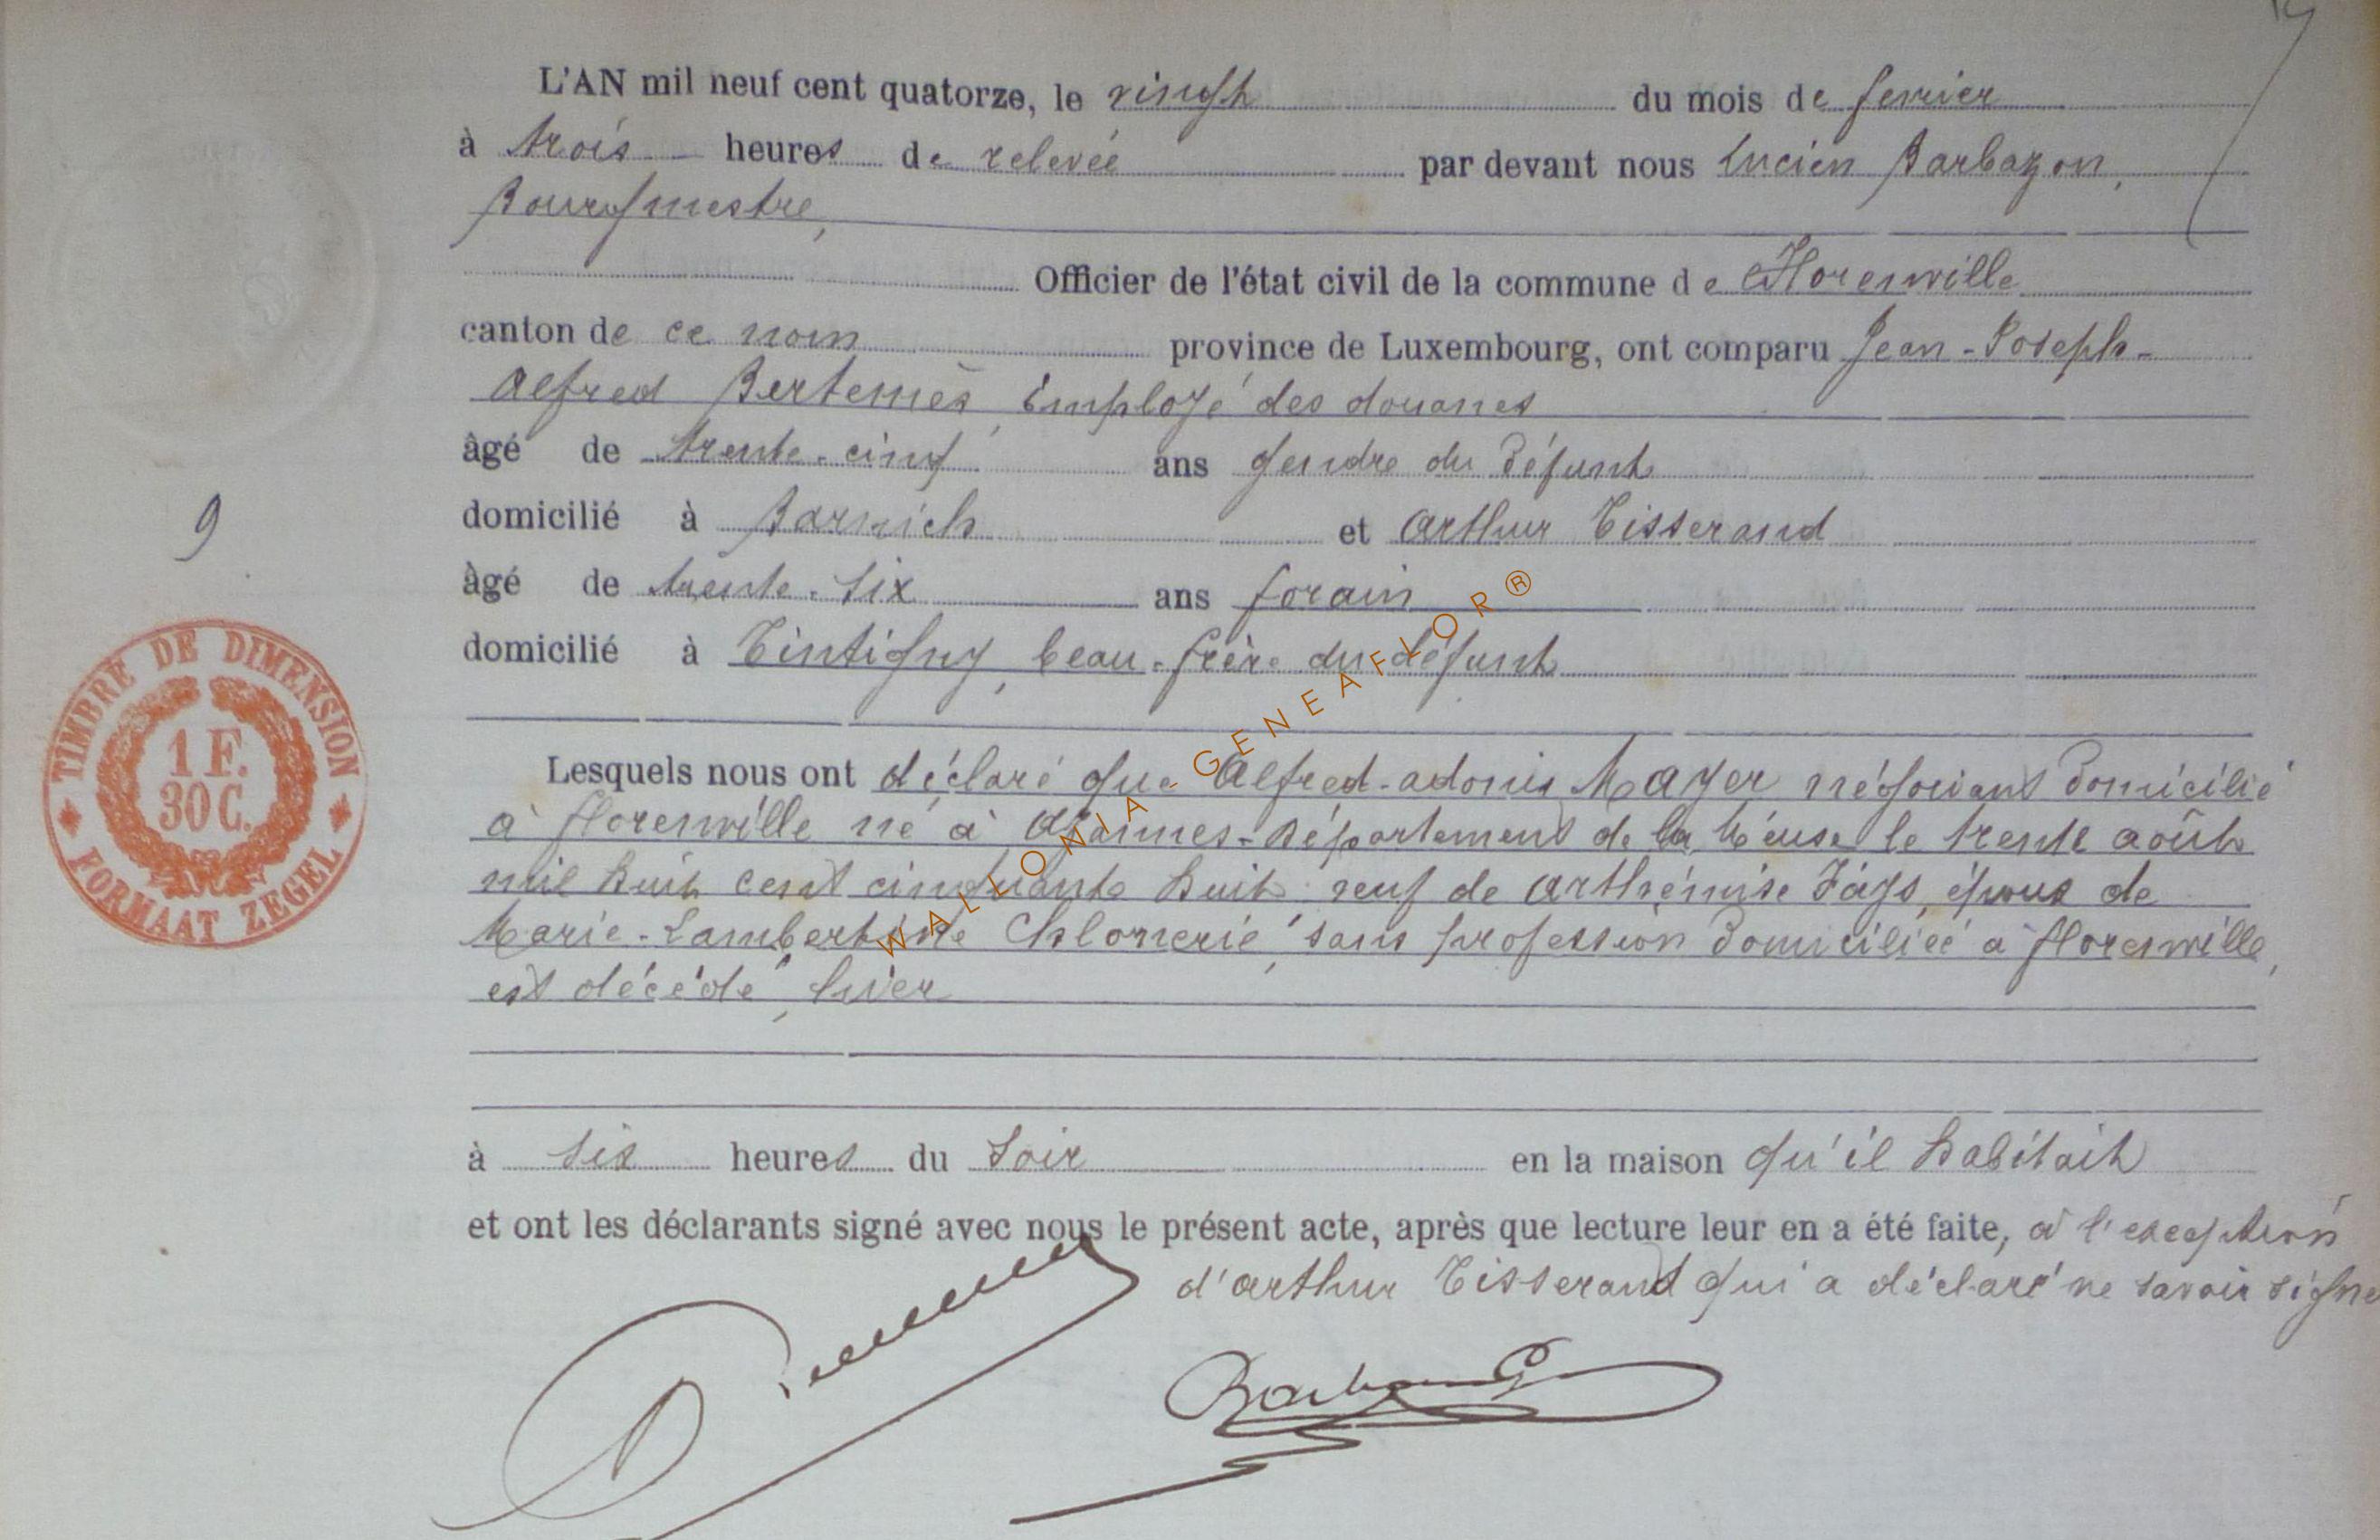 L'AN mil neuf cent quatorze, le vingt du mois de fevrier
à trois heures de relevée par devant nous Lucien Barbazon,
Bourgmestre,
Officier de l'état civil de la commune de Florenville
canton de ce nom province de Luxembourg, ont comparu Jean-Joseph-
Alfred Bertemès, employé des douanes
âgé de trente-cinq ans gendre du défunt
domicilié à Barnich et Arthur Tisserand
âgé de trente-six ans forain
domicilié à Tintigny, beau-frère du défunt
Lesquels nous ont déclaré que Alfred-adonis Mayer négociant domicilié
à florenville né à Azannes-Département de la Meuse le trente août
mil huit cent cinquante huit veuf de Arthémise Fays, époux de
Marie-Lambertine Chlonerie, sans profession domiciliée à florenville,
est décédé, hier
à six heures du soir en la maison qu'il habitait
et ont les déclarants signé avec nous le présent acte, après que lecture leur en a été faite, à l'exception
d'arthur Tisserand qui a déclaré ne savoir signe
9
TIMBRE DE DIMENSION
1 F.
30 C.
FORMAAT ZEGEL
WALLONIA - GENEAFLOR ®